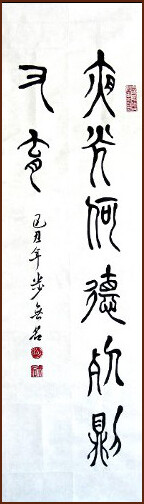 夜光何德死則
又育
己丑年步